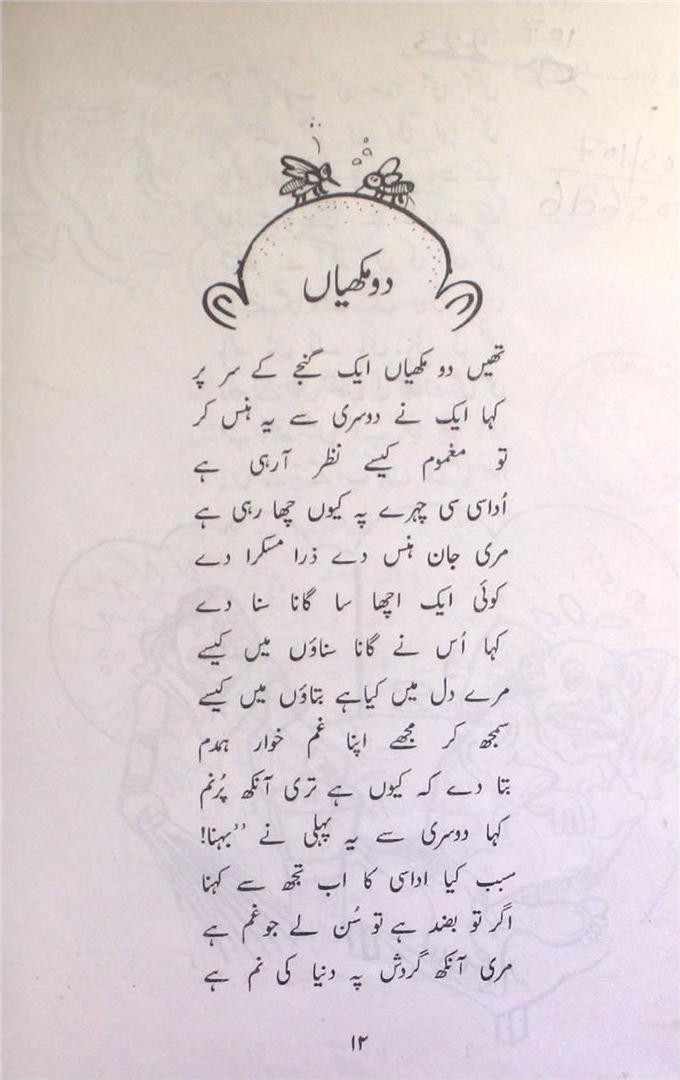 دو مکھیاں
تھیں دو مکھیاں ایک گنجے کے سر پر
کہا ایک نے دوسری سے یہ ہنس کر
تو مغموم کیسے نظر آرہی ہے
اُداسی سی چہرے پہ کیوں چھا رہی ہے
مری جان ہنس دے ذرا مسکرا دے
کوئی ایک اچھا سا گانا سنا دے
کہا اُس نے گانا سناؤں میں کیسے
مرے دل میں کیاہے بتاؤں میں کیسے
سمجھ کر مجھے اپنا غم خوار ہمدم
بتا دے کہ کیوں ہے تری آنکھ پُرنم
کہا دوسری سے یہ پہلی نے ’’بہنا!
سبب کیا اداسی کا اب تجھ سے کہنا
اگر تو بضد ہے تو سُن لے جو غم ہے
مری آنکھ گردش پہ دنیا کی نم ہے
۱۲